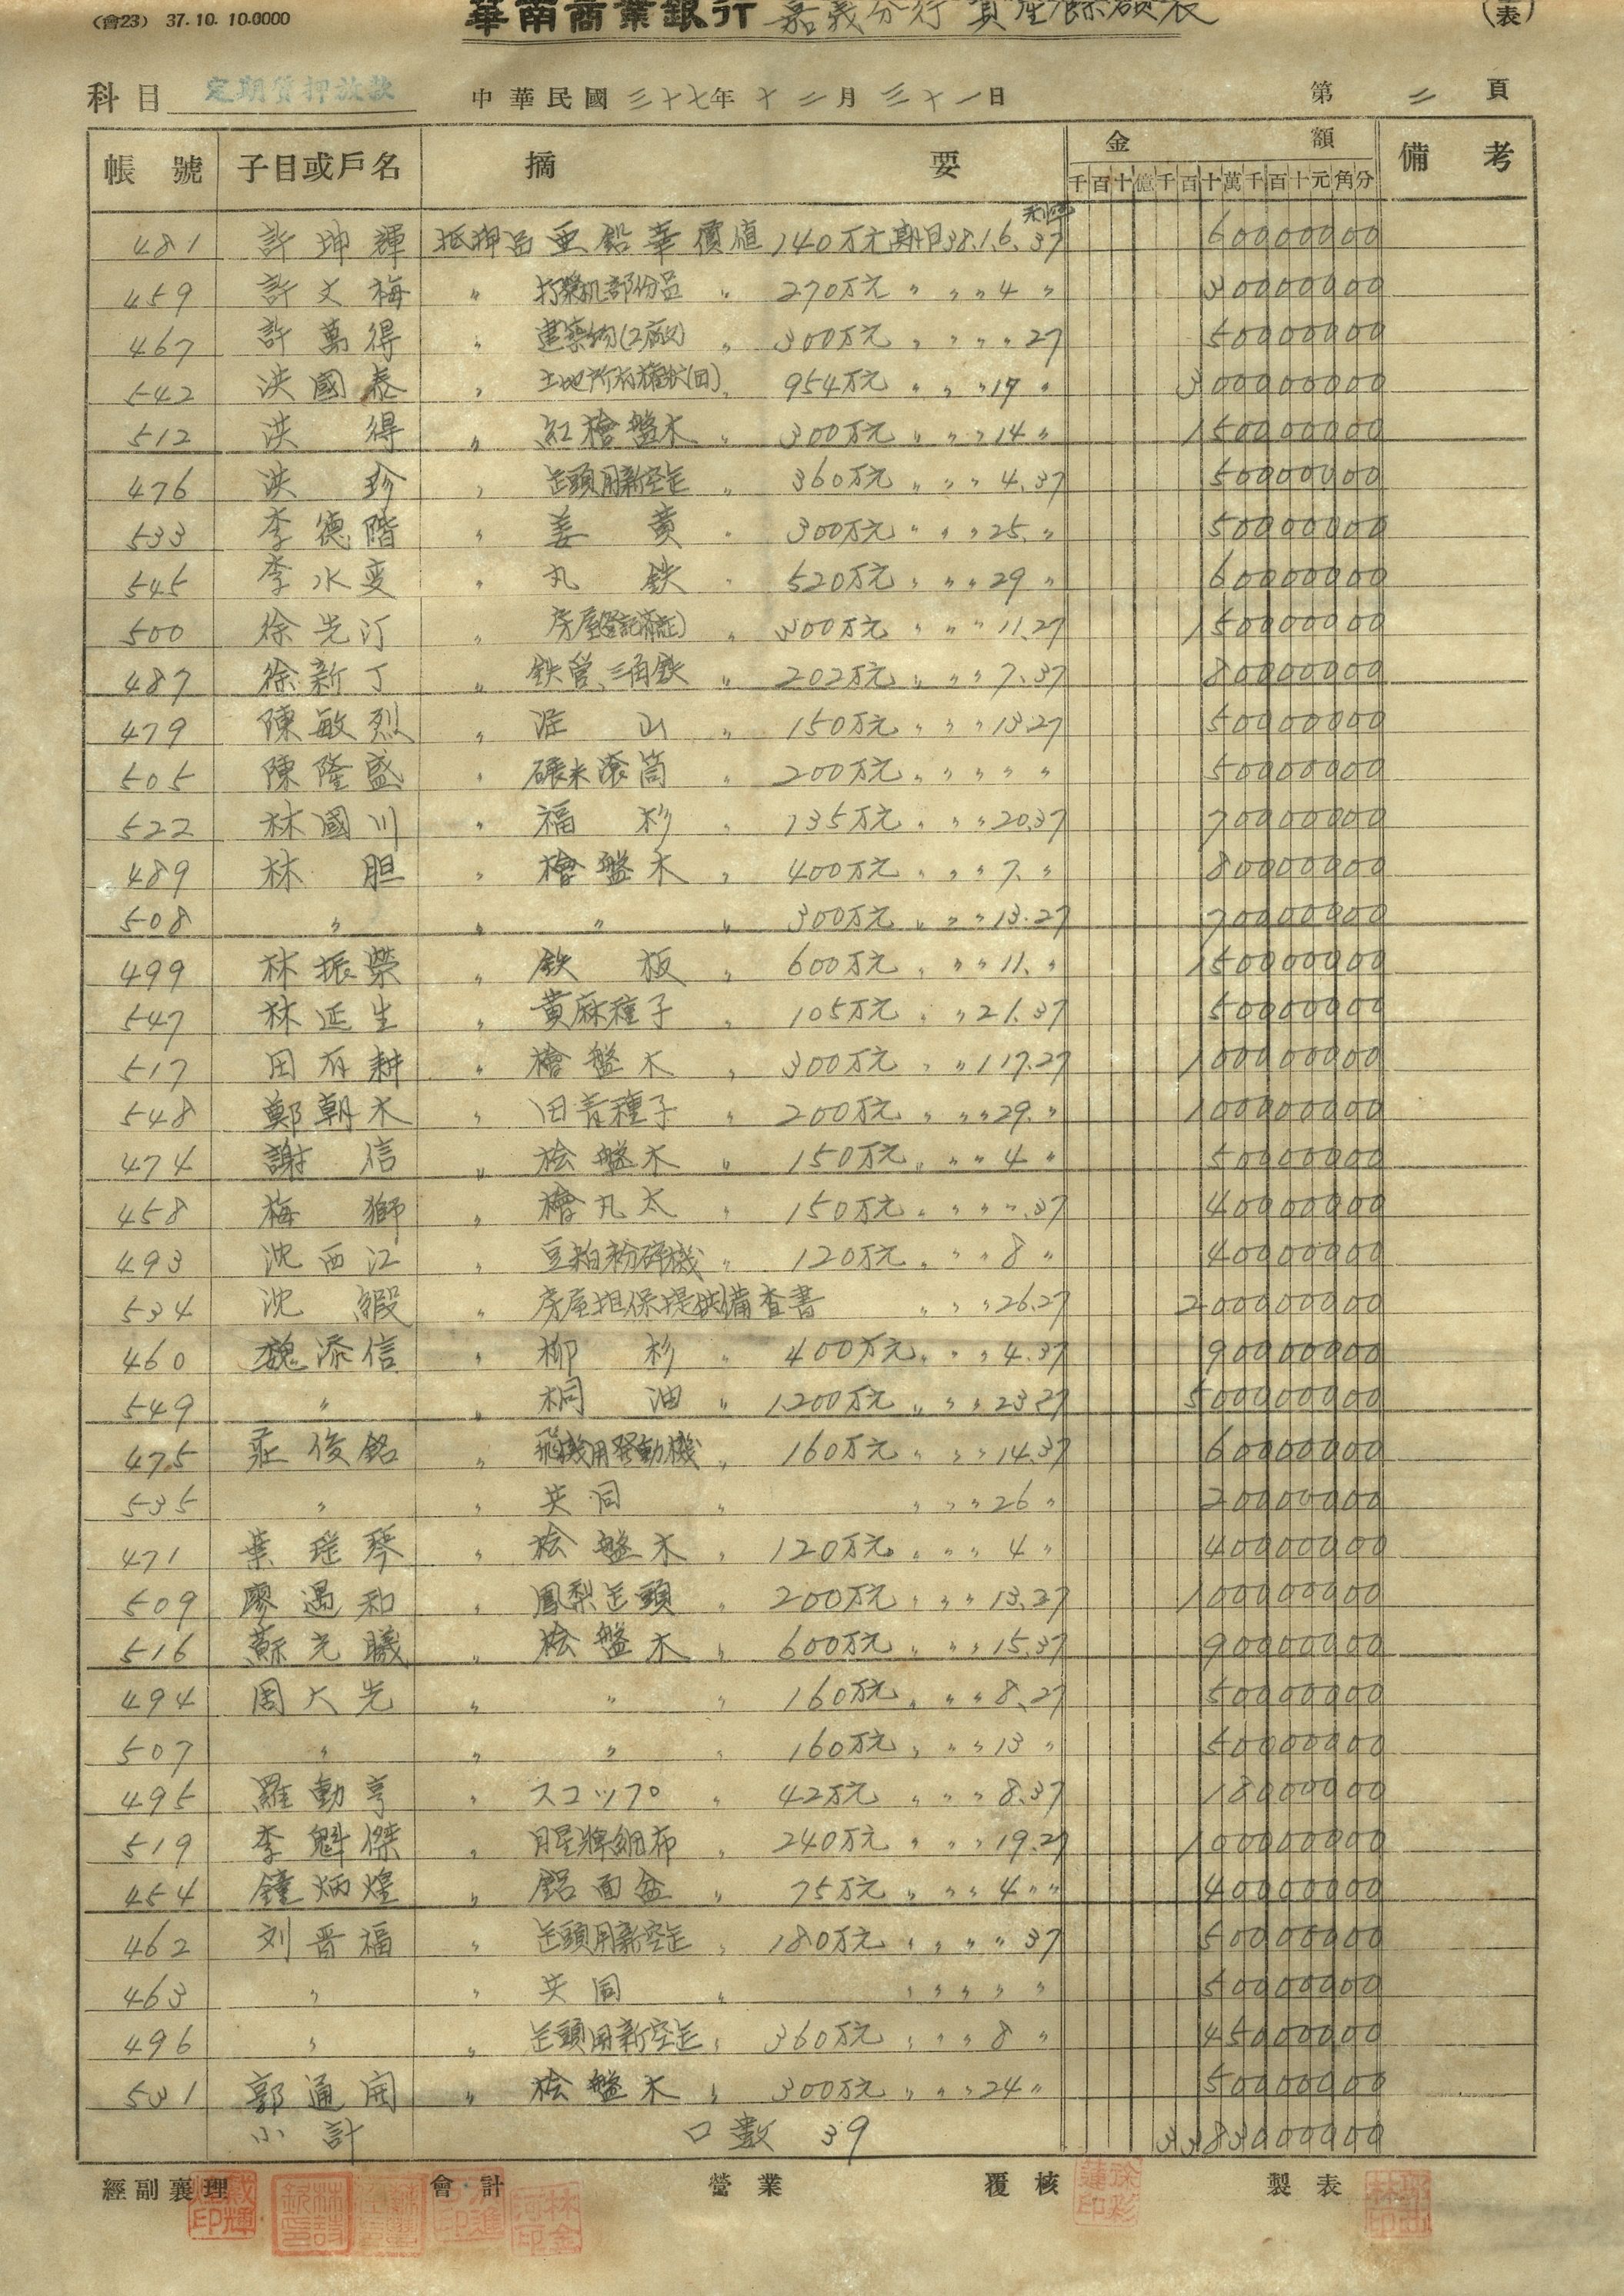 (會23) 37.10.10.0000
華南商業銀行 嘉義分行 資產餘額表 (表)
科目 定期質押放款 中華民國三十七年十二月三十一日 第二頁
帳號 子目或戶名 摘要 金額 備考
千百十億千百十萬千百十元角分
利率
481 許坤輝 抵押品 亜鉛華 價值 140万元 期日38.1.6. 37 60000000
459 許文梅 〃 打漿机部份品 〃 270万元 〃 〃 〃 4 〃 30000000
467 許萬得 〃 建築物(2廠) 〃 300万元 〃 〃 〃 〃 27 50000000
542 洪國泰 〃 土地所有權狀(田) 〃 954万元 〃 〃 〃 17 〃 300000000
512 洪得 〃 紅檜盤木 〃 300万元 〃 〃 〃 14 〃 150000000
476 洪珍 〃 缶頭用新空缶 〃 360万元 〃 〃 〃 4.37 50000000
533 李德階 〃 姜黄 〃 300万元 〃 〃 〃 25. 〃 50000000
545 李水变 〃 丸鉄 〃 520万元 〃 〃 〃 29 〃 60000000
500 徐光汀 〃 房屋(登記済証) 〃 300万元 〃 〃 〃 11.27 150000000
487 徐新丁 〃 鉄管、三角鉄 〃 202万元 〃 〃 〃 7.37 80000000
479 陳敏烈 〃 〃 150万元 〃 〃 〃 13.27 50000000
505 陳隆盛 〃 碾米滾筒 〃 200万元 〃 〃 〃 〃 〃 50000000
522 林國川 〃 福杉 〃 135万元 〃 〃 〃 20.37 70000000
489 林胆 〃 檜盤木 〃 400万元 〃 〃 〃 7. 〃 80000000
508 〃 〃 〃 〃 300万元 〃 〃 〃 13.27 70000000
499 林振榮 〃 鉄板 〃 600万元 〃 〃 〃 11. 〃 150000000
547 林延生 〃 黄麻種子 〃 105万元 〃 〃 21.37 50000000
517 田有耕 〃 檜盤木 〃 300万元 〃 〃 1 17.27 100000000
548 鄭朝木 〃 田青種子 〃 200万元 〃 〃 〃 29. 〃 100000000
474 謝信 〃 桧盤木 〃 150万元 〃 〃 〃 4 〃 50000000
458 梅獅 〃 檜丸太 〃 150万元 〃 〃 〃 〃.37 40000000
493 沈西江 〃 豆粕粉碎機 〃 120万元 〃 〃 〃 8 〃 40000000
534 沈緞 〃 房屋担保提供備查書 〃 〃 〃 26.27 200000000
460 魏添信 〃 柳杉 〃 400万元 〃 〃 〃 4.37 90000000
549 〃 〃 桐油 〃 1.200万元 〃 〃 〃 23.27 500000000
475 莊俊銘 〃 飛機用發動機 〃 160万元 〃 〃 〃 14.37 60000000
535 〃 〃 共同 〃 〃 〃 〃 26 〃 20000000
471 葉瑳琴 〃 桧盤木 〃 120万元 〃 〃 〃 4 〃 40000000
509 廖過和 〃 鳳梨缶頭 〃 200万元 〃 〃 〃 13.27 100000000
516 蘇光曦 〃 桧盤木 〃 600万元 〃 〃 〃 15.37 90000000
494 周大光 〃 〃 〃 160万元 〃 〃 〃 8.27 50000000
507 〃 〃 〃 〃 160万元 〃 〃 〃 13 〃 50000000
495 羅動亨 〃 スコップ 〃 42万元 〃 〃 〃 8.37 18000000
519 李魁傑 〃 月星牌細布 〃 240万元 〃 〃 〃 19.27 100000000
454 鐘炳煌 〃 鋁面盆 〃 75万元 〃 〃 〃 4 〃 〃 40000000
462 刘晋福 〃 缶頭用新空缶 〃 180万元 〃 〃 〃 〃 37 50000000
463 〃 〃 共同 〃 〃 〃 〃 〃 〃 50000000
496 〃 〃 缶頭用新空缶 〃 360万元 〃 〃 〃 8 〃 45000000
531 郭通開 〃 桧盤木 〃 300万元 〃 〃 〃 24 〃 50000000
小計 口數 39 3383000000
經副襄理 會計 營業 覆核 製表